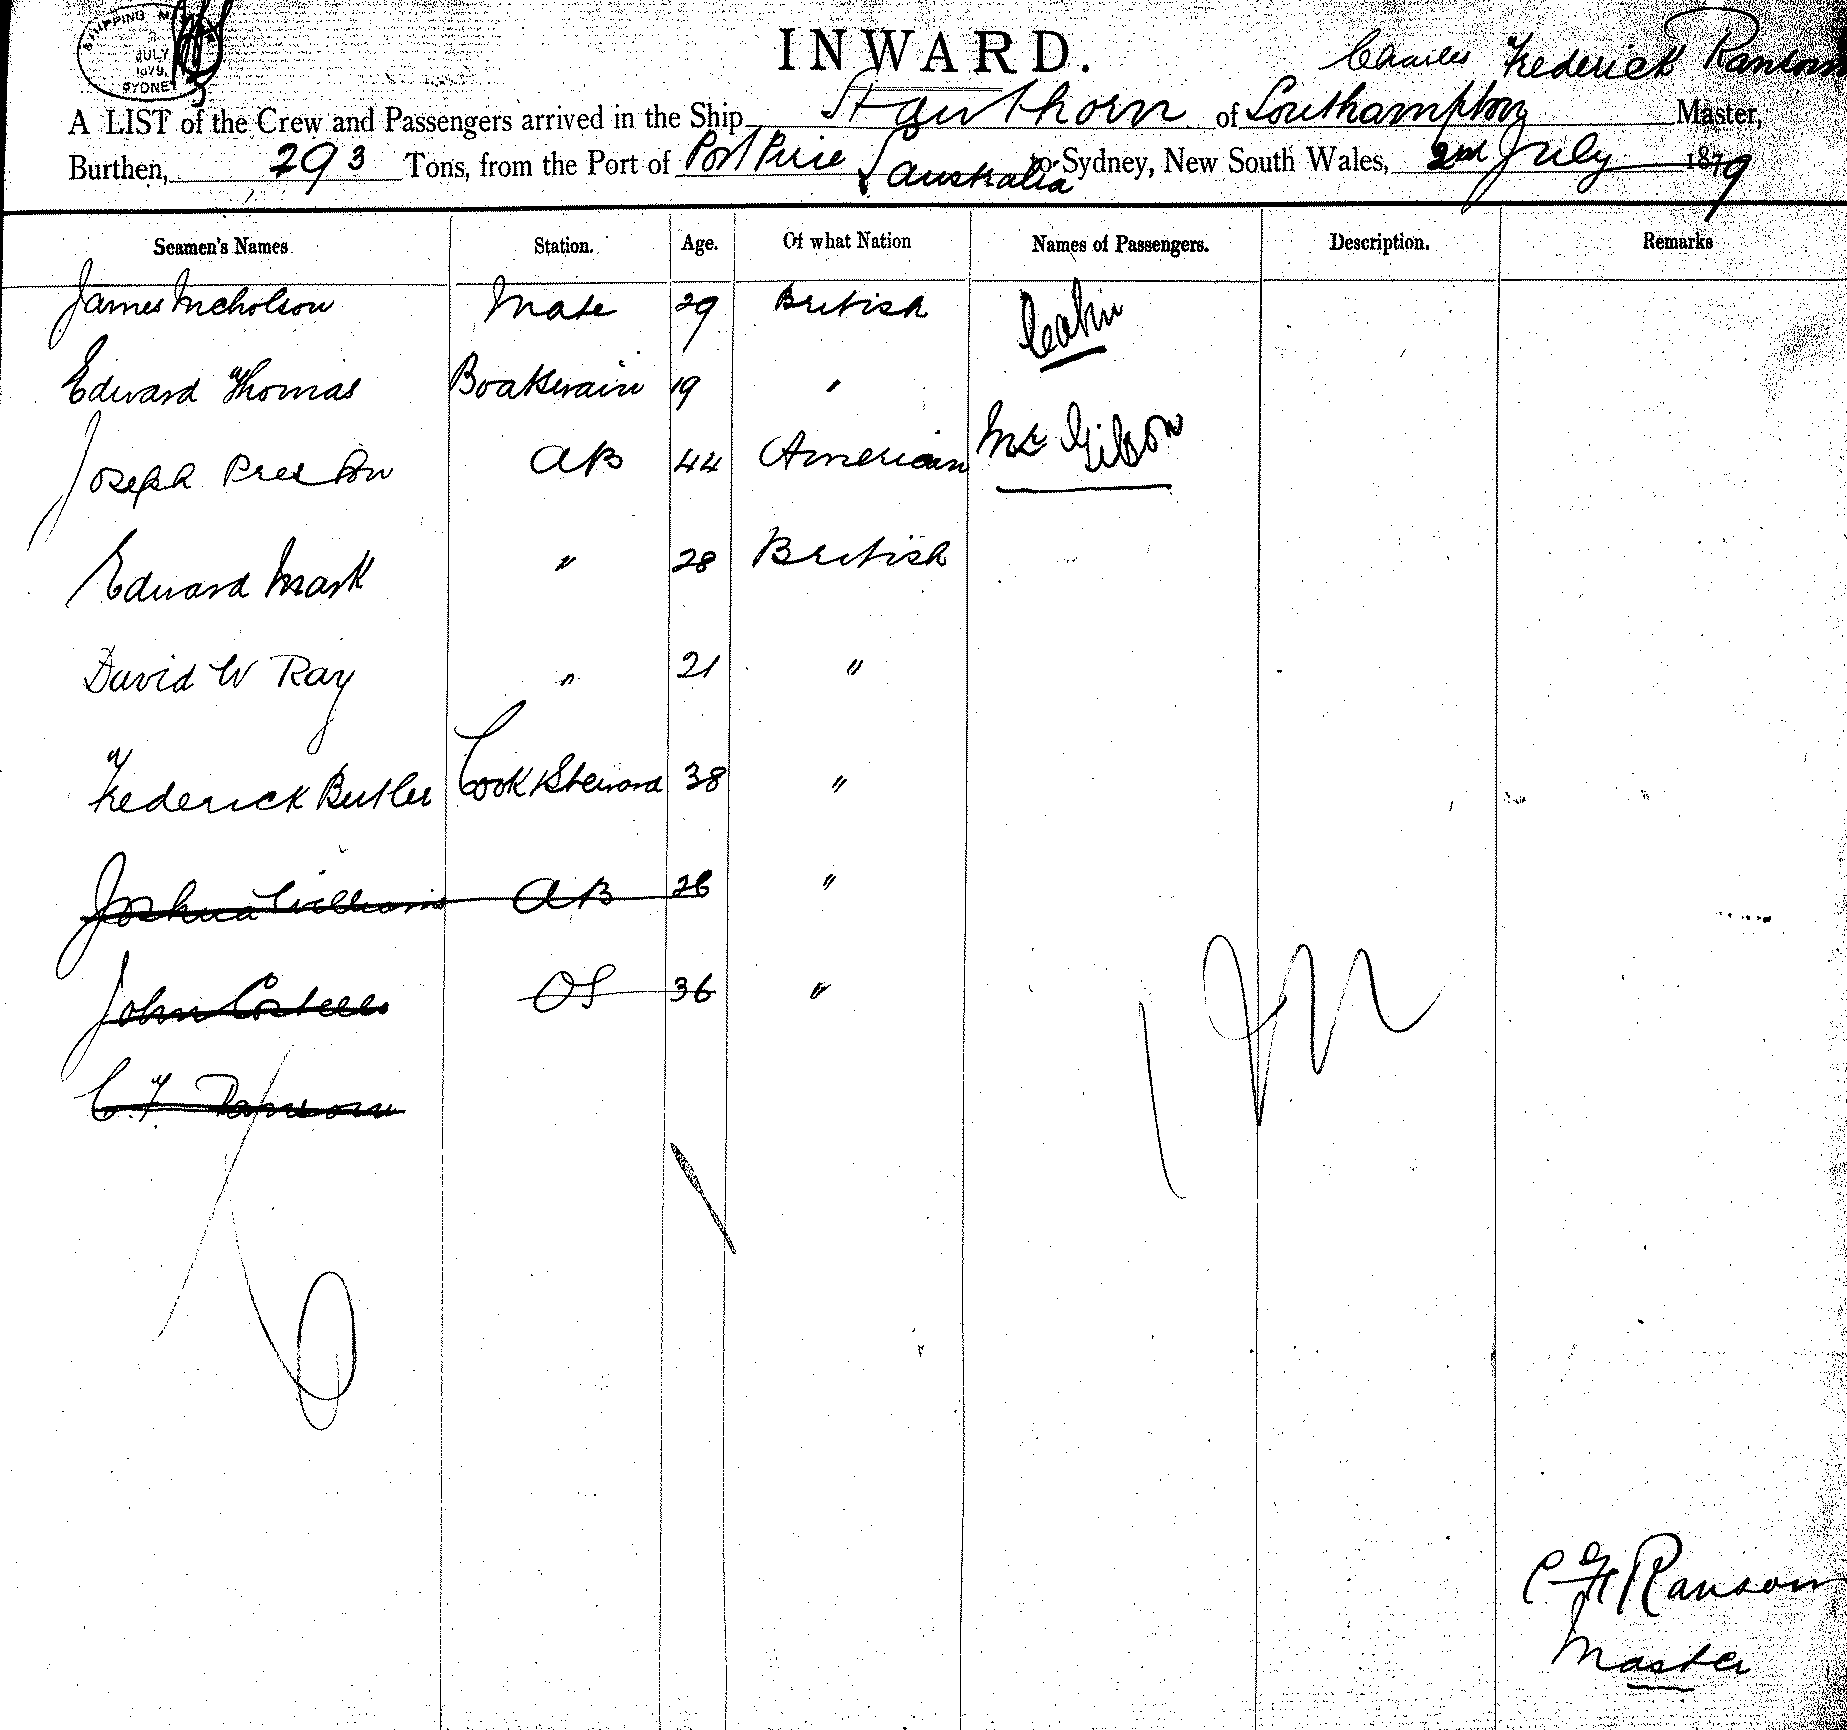 SHIPPING M
JULY
1879
SYDNEY
INWARD.
Charles Frederick Ransom
A LIST of the Crew and Passengers arrived in the Ship Hawthorn of Southampton Master,
Burthen, 293 Tons, from the Port of Port Pirie S Australia to Sydney, New South Wales, 2nd July 1879
Seamen's Names Station. Age. Of what Nation Names of Passengers. Description. Remarks
James Nicholson Mate 29 British
Edward Thomas Boatswain 19 "
Joseph Preston AB 44 American Mr Gibson
Edward Mark " 28 British
David W Ray " 21 "
Frederick Butler Cook & Steward 38 "
Joshua Williams AB 26 "
John Costello OS 36 "
C. F Ransom
C F Ransom
Master